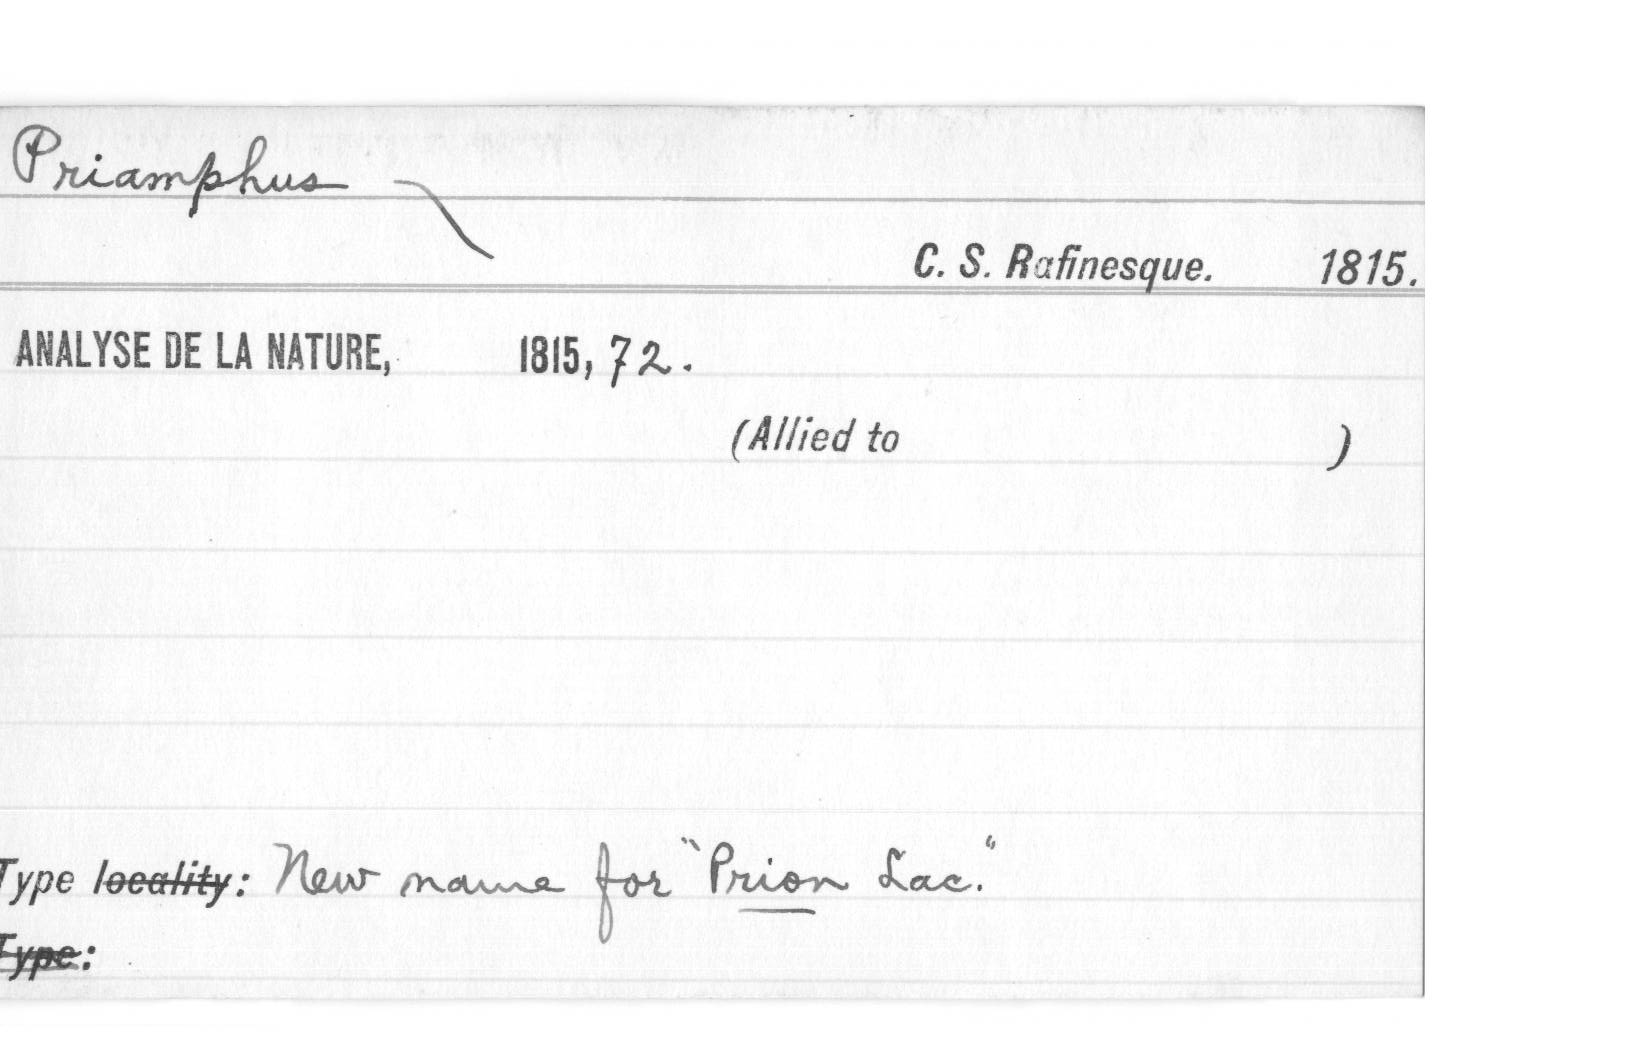 Priamphus
C. S. Rafinesque. 1815.
ANALYSE DE LA NATURE, 1815, 72.
(Allied to )
Type locality: New name for "Prion Lac."
Type: